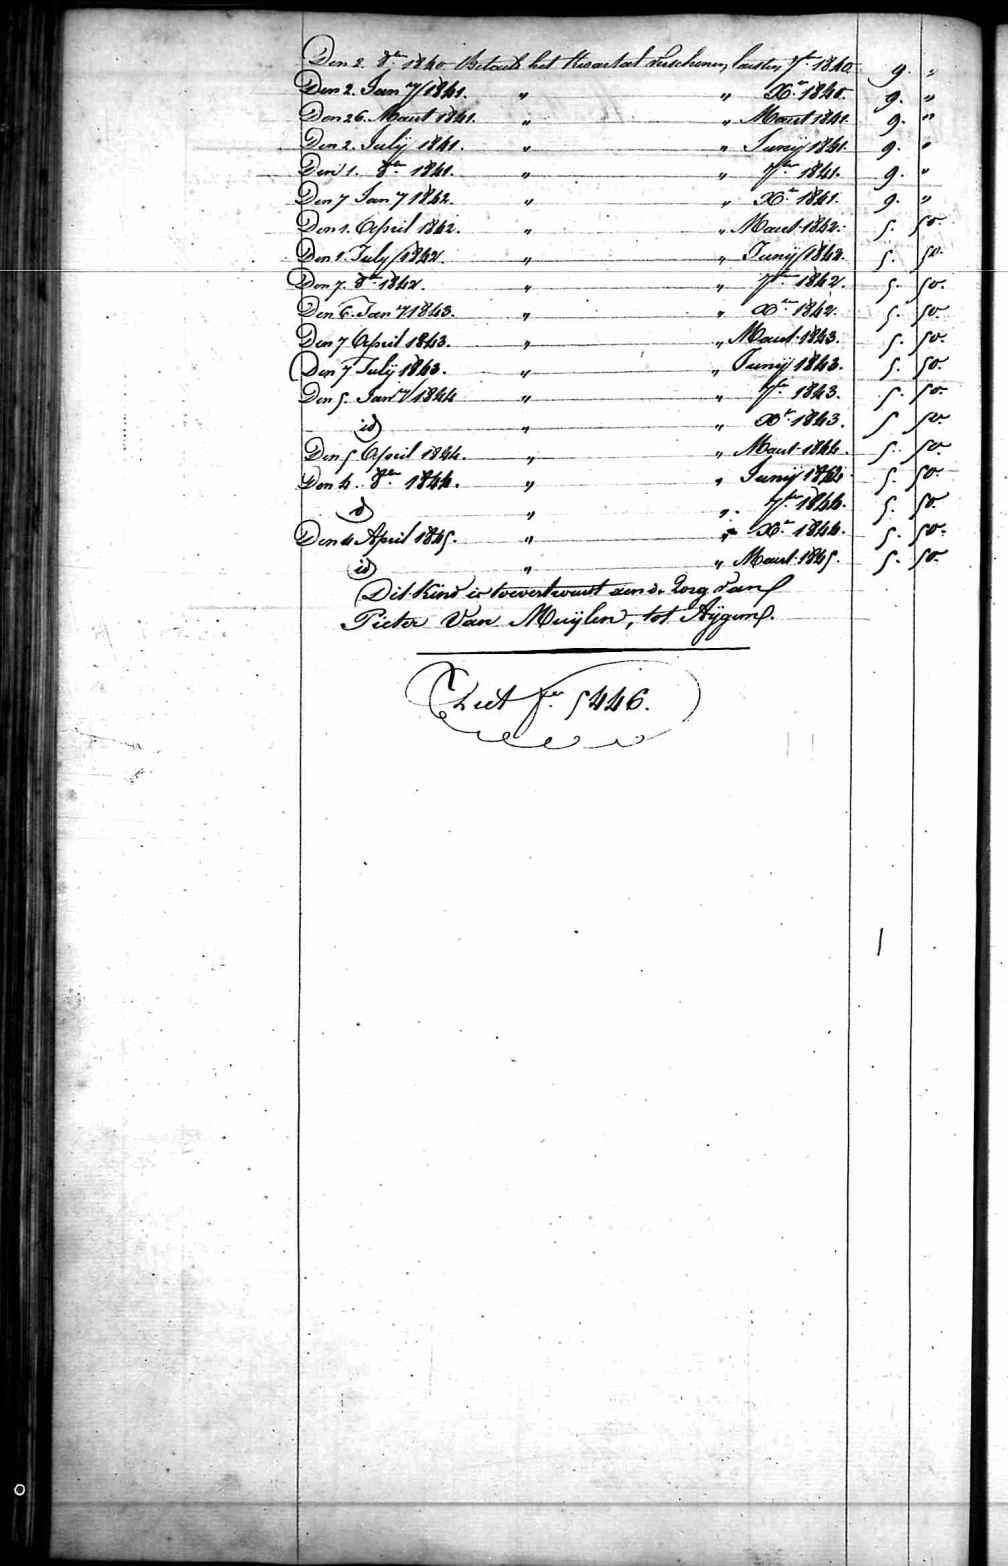 Den 2. 8er 1840 Betaald het Kwartaal verschenen lausten 7er 1840 9. "
Den 2. Jany 1841. " " Xer 1840. 9. "
Den 26. Maart 1841. " " Maart 1841. 9. "
Den 2. Julij 1841. " " Junij 1841. 9. "
Den 1. 8er 1841. " " 7er 1841. 9. "
Den 7 Jany 1842. " " Xer 1841. 9. "
Den 1. April 1842. " " Maart 1842. 5. 50.
Den 1. July 1842. " " Junij 1842. 5. 50.
Den 7. 8er 1842. " " 7er 1842. 5. 50.
Den 6. Jany 1843. " " Xer 1842. 5. 50.
Den 7 April 1843. " " Maart 1843. 5. 50.
Den 7 Julij 1843. " " Junij 1843. 5. 50.
Den 5. Jany 1844 " " 7er 1843. 5. 50.
id " " Xer 1843. 5 50.
Den 5 April 1844. " " Maart 1844. 5. 50.
Den 4. 8er 1844. " " Junij 1844 5. 50.
id " " 7er 1844. 5. 50.
Den 4 April 1845. " " Xer 1844. 5. 50.
id " " Maart 1845. 5. 50.
Dit Kind is toevertrouwt aen de Zorg van
Pieter Van Muijlen, tot Aijgem.
Ziet fo. 5446.